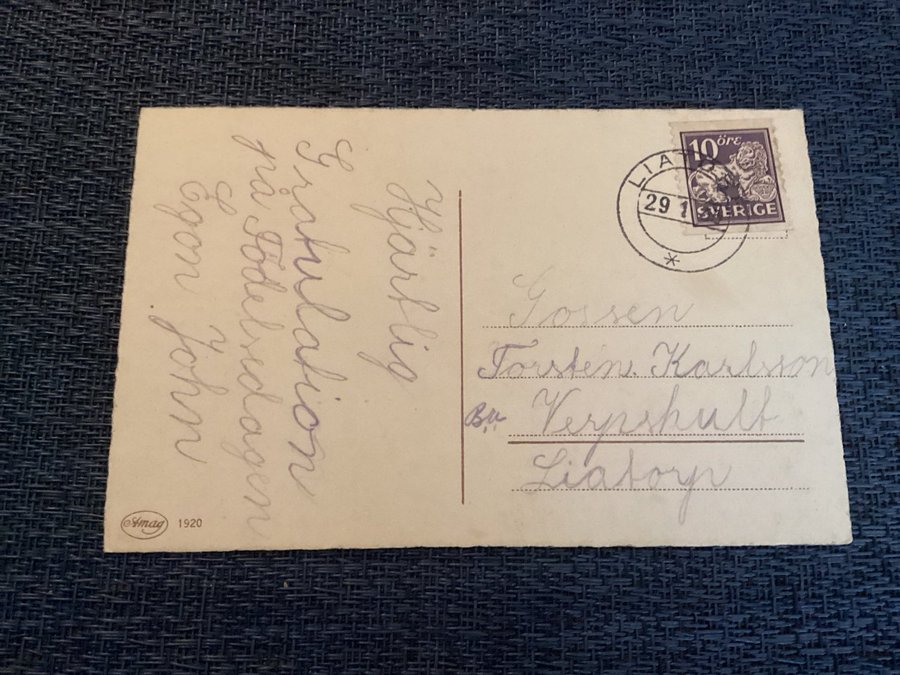 Hjärtlig
Gratulation
på Födelsedagen
Egon John
10 öre
SVERIGE
LIATORP
29 1
Gossen
Torsten. Karlsson
Verpshult
Liatorp
Amag 1920